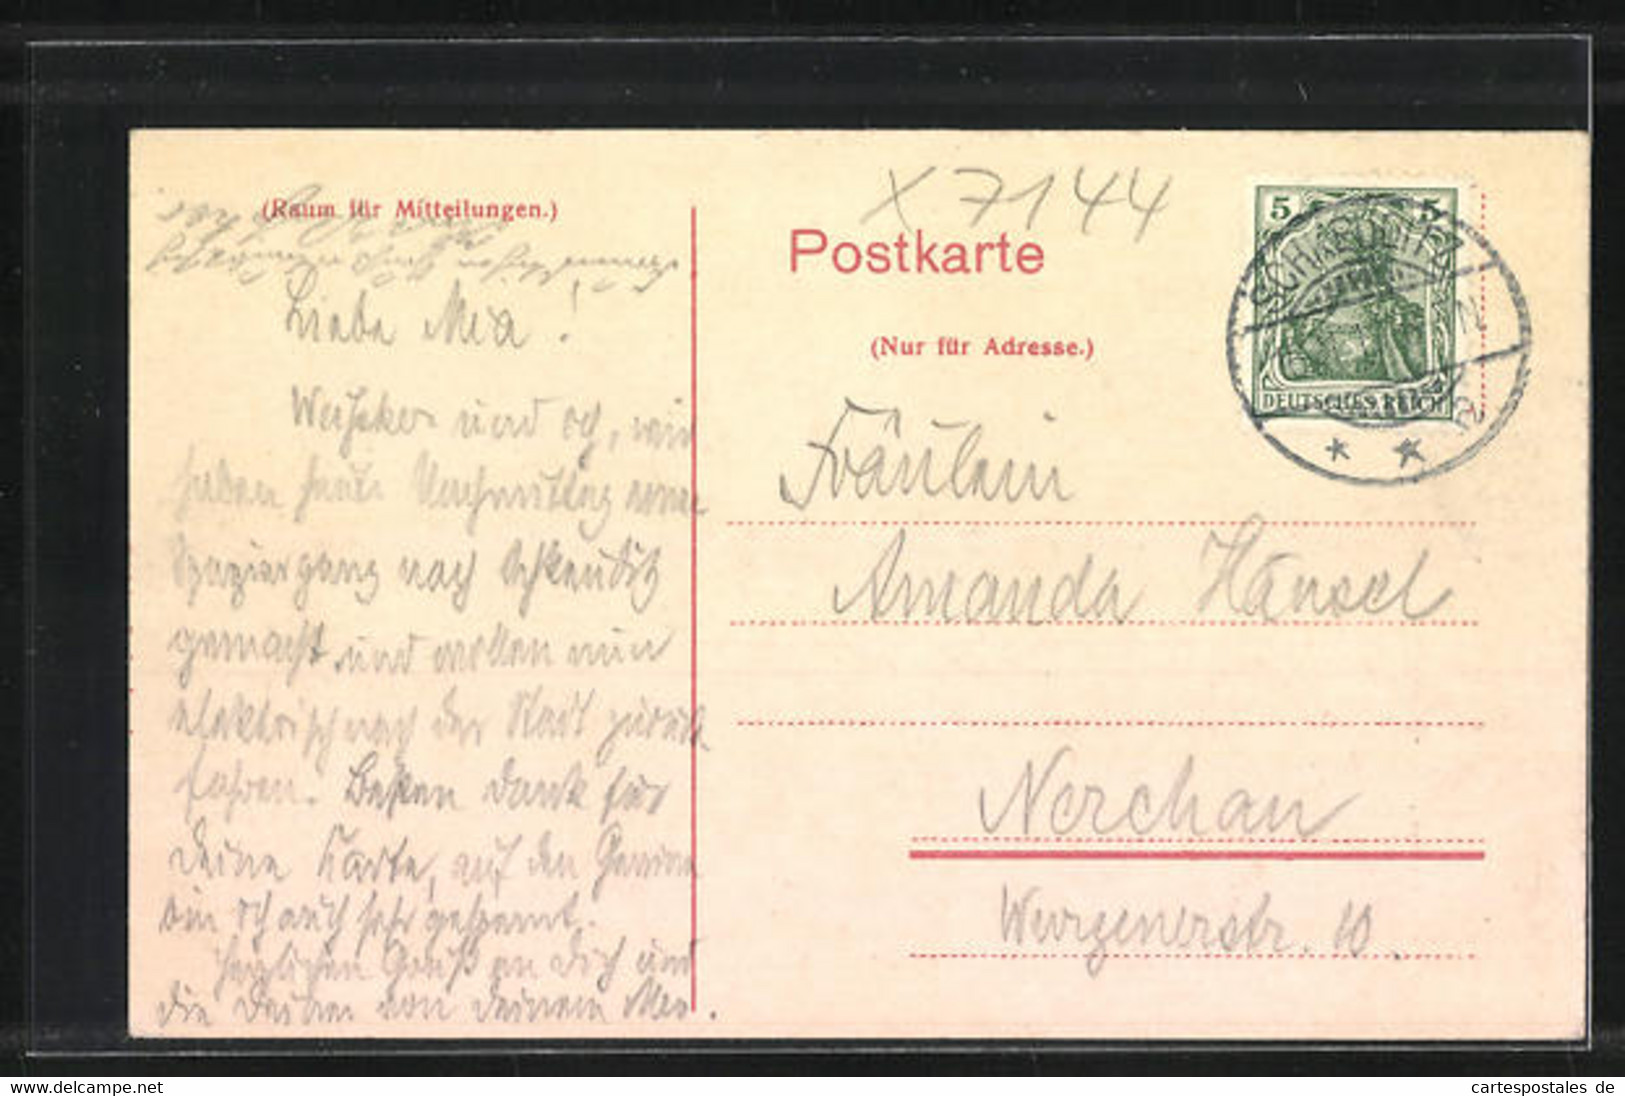 (Raum für Mitteilungen.)
Liebe Mea!
und ich, wir
haben heute Nachmittag einen
Spaziergang nach Schkeuditz
gemacht und wollen nun
elektrisch nach der Stadt zurück
fahren. Besten Dank für
Deine Karte, auf den Gewinn
bin ich auch sehr gespannt.
Herzlichen Gruß an Dich und
die Deinen von Deinem
Postkarte
(Nur für Adresse.)
X 7144
5 5
DEUTSCHES REICH
SCHKEUDITZ
Fräulein
Amanda Hänsel
Nerchau
Wurzenerstr. 10.
www.delcampe.net
cartespostales de